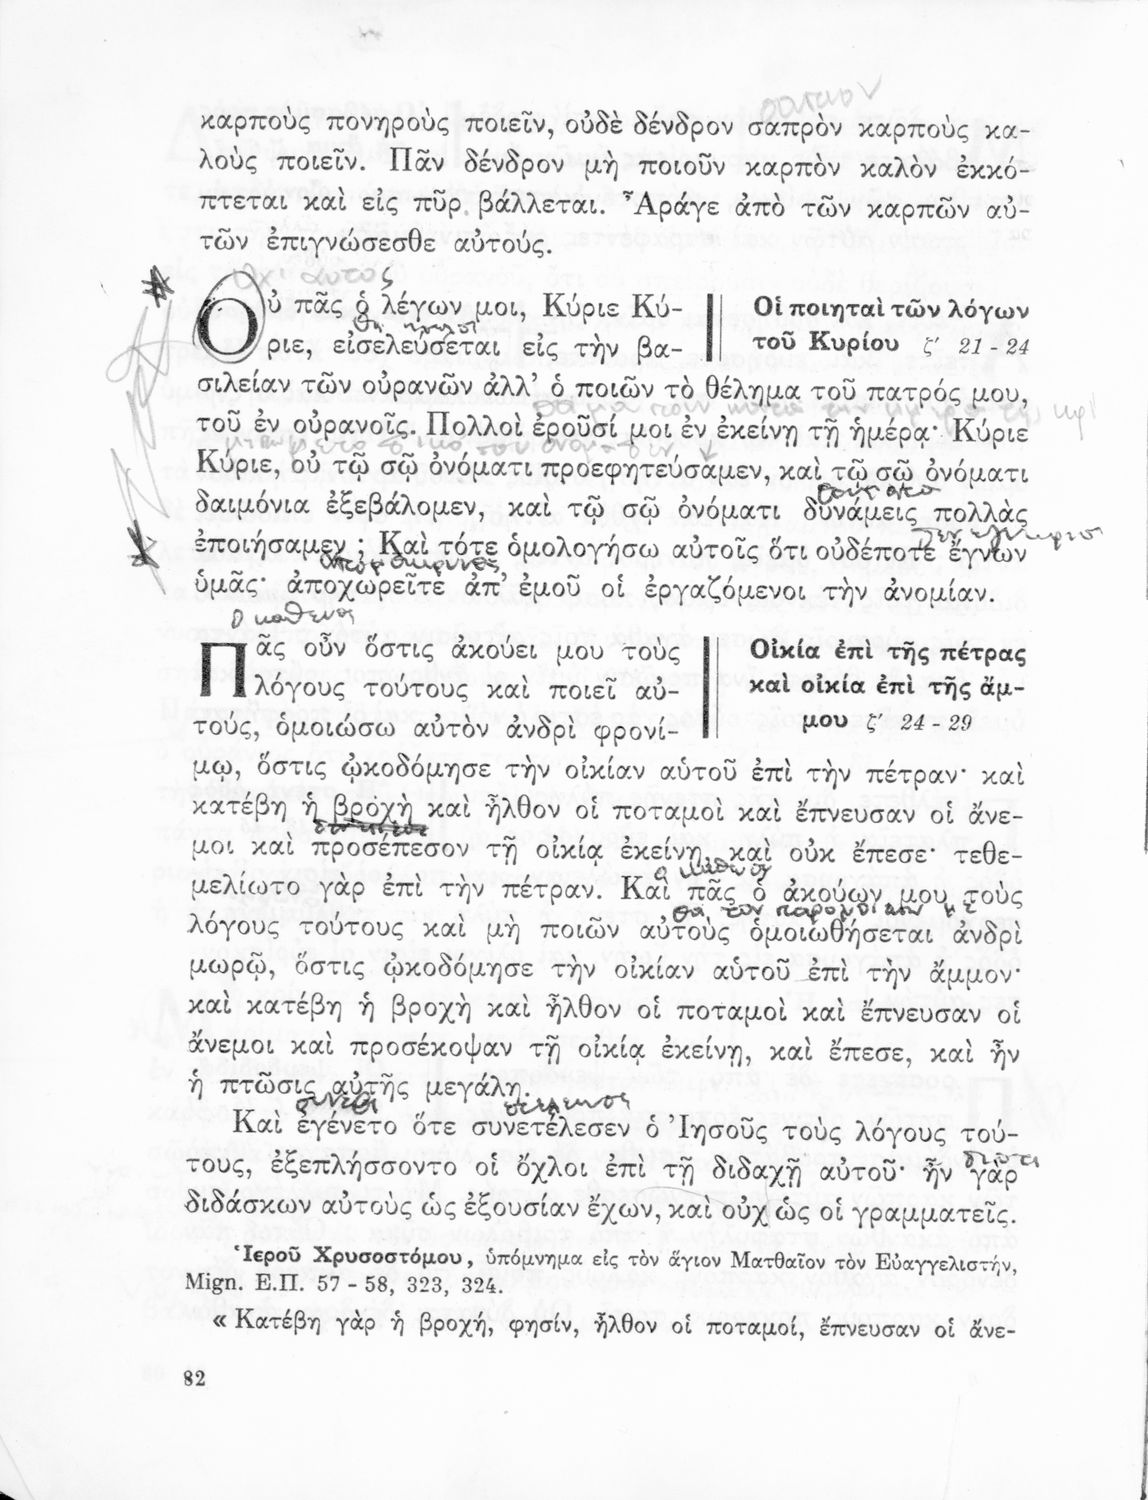 καρποὺς πονηροὺς ποιεῖν, οὐδὲ δένδρον σαπρὸν καρποὺς κα-
λοὺς ποιεῖν. Πᾶν δένδρον μὴ ποιοῦν καρπὸν καλὸν ἐκκό-
πτεται καὶ εἰς πῦρ βάλλεται. Ἆράγε ἀπὸ τῶν καρπῶν αὐ-
τῶν ἐπιγνώσεσθε αὐτούς.
ὄχι αὐτὸς
Οὐ πᾶς ὁ λέγων μοι, Κύριε Κύ-
ριε, εἰσελεύσεται εἰς τὴν βα-
Οἱ ποιηταὶ τῶν λόγων
τοῦ Κυρίου ζ′ 21 - 24
σιλείαν τῶν οὐρανῶν ἀλλ’ ὁ ποιῶν τὸ θέλημα τοῦ πατρός μου,
τοῦ ἐν οὐρανοῖς. Πολλοὶ ἐροῦσί μοι ἐν ἐκείνῃ τῇ ἡμέρᾳ· Κύριε
Κύριε, οὐ τῷ σῷ ὀνόματι προεφητεύσαμεν, καὶ τῷ σῷ ὀνόματι
δαιμόνια ἐξεβάλομεν, καὶ τῷ σῷ ὀνόματι δυνάμεις πολλὰς
ἐποιήσαμεν ; Καὶ τότε ὁμολογήσω αὐτοῖς ὅτι οὐδέποτε ἔγνων
ὑμᾶς· ἀποχωρεῖτε ἀπ’ ἐμοῦ οἱ ἐργαζόμενοι τὴν ἀνομίαν.
ὁ καθένας
Πᾶς οὖν ὅστις ἀκούει μου τοὺς
λόγους τούτους καὶ ποιεῖ αὐ-
τούς, ὁμοιώσω αὐτὸν ἀνδρὶ φρονί-
Οἰκία ἐπὶ τῆς πέτρας
καὶ οἰκία ἐπὶ τῆς ἄμ-
μου ζ′ 24 - 29
μῳ, ὅστις ᾠκοδόμησε τὴν οἰκίαν αὑτοῦ ἐπὶ τὴν πέτραν· καὶ
κατέβη ἡ βροχὴ καὶ ἦλθον οἱ ποταμοὶ καὶ ἔπνευσαν οἱ ἄνε-
μοι καὶ προσέπεσον τῇ οἰκίᾳ ἐκείνῃ, καὶ οὐκ ἔπεσε· τεθε-
ὁ καθένας
μελίωτο γὰρ ἐπὶ τὴν πέτραν. Καὶ πᾶς ὁ ἀκούων μου τοὺς
θὰ τὸν παρομοιάσω μὲ
λόγους τούτους καὶ μὴ ποιῶν αὐτοὺς ὁμοιωθήσεται ἀνδρὶ
μωρῷ, ὅστις ᾠκοδόμησε τὴν οἰκίαν αὑτοῦ ἐπὶ τὴν ἄμμον·
καὶ κατέβη ἡ βροχὴ καὶ ἦλθον οἱ ποταμοὶ καὶ ἔπνευσαν οἱ
ἄνεμοι καὶ προσέκοψαν τῇ οἰκίᾳ ἐκείνῃ, καὶ ἔπεσε, καὶ ἦν
ἡ πτῶσις αὐτῆς μεγάλη.
Καὶ ἐγένετο ὅτε συνετέλεσεν ὁ Ἰησοῦς τοὺς λόγους τού-
τους, ἐξεπλήσσοντο οἱ ὄχλοι ἐπὶ τῇ διδαχῇ αὐτοῦ· ἦν γὰρ
διδάσκων αὐτοὺς ὡς ἐξουσίαν ἔχων, καὶ οὐχ ὡς οἱ γραμματεῖς.
Ἱεροῦ Χρυσοστόμου, ὑπόμνημα εἰς τὸν ἅγιον Ματθαῖον τὸν Εὐαγγελιστήν,
Mign. Ε.Π. 57 - 58, 323, 324.
« Κατέβη γὰρ ἡ βροχή, φησίν, ἦλθον οἱ ποταμοί, ἔπνευσαν οἱ ἄνε-
82